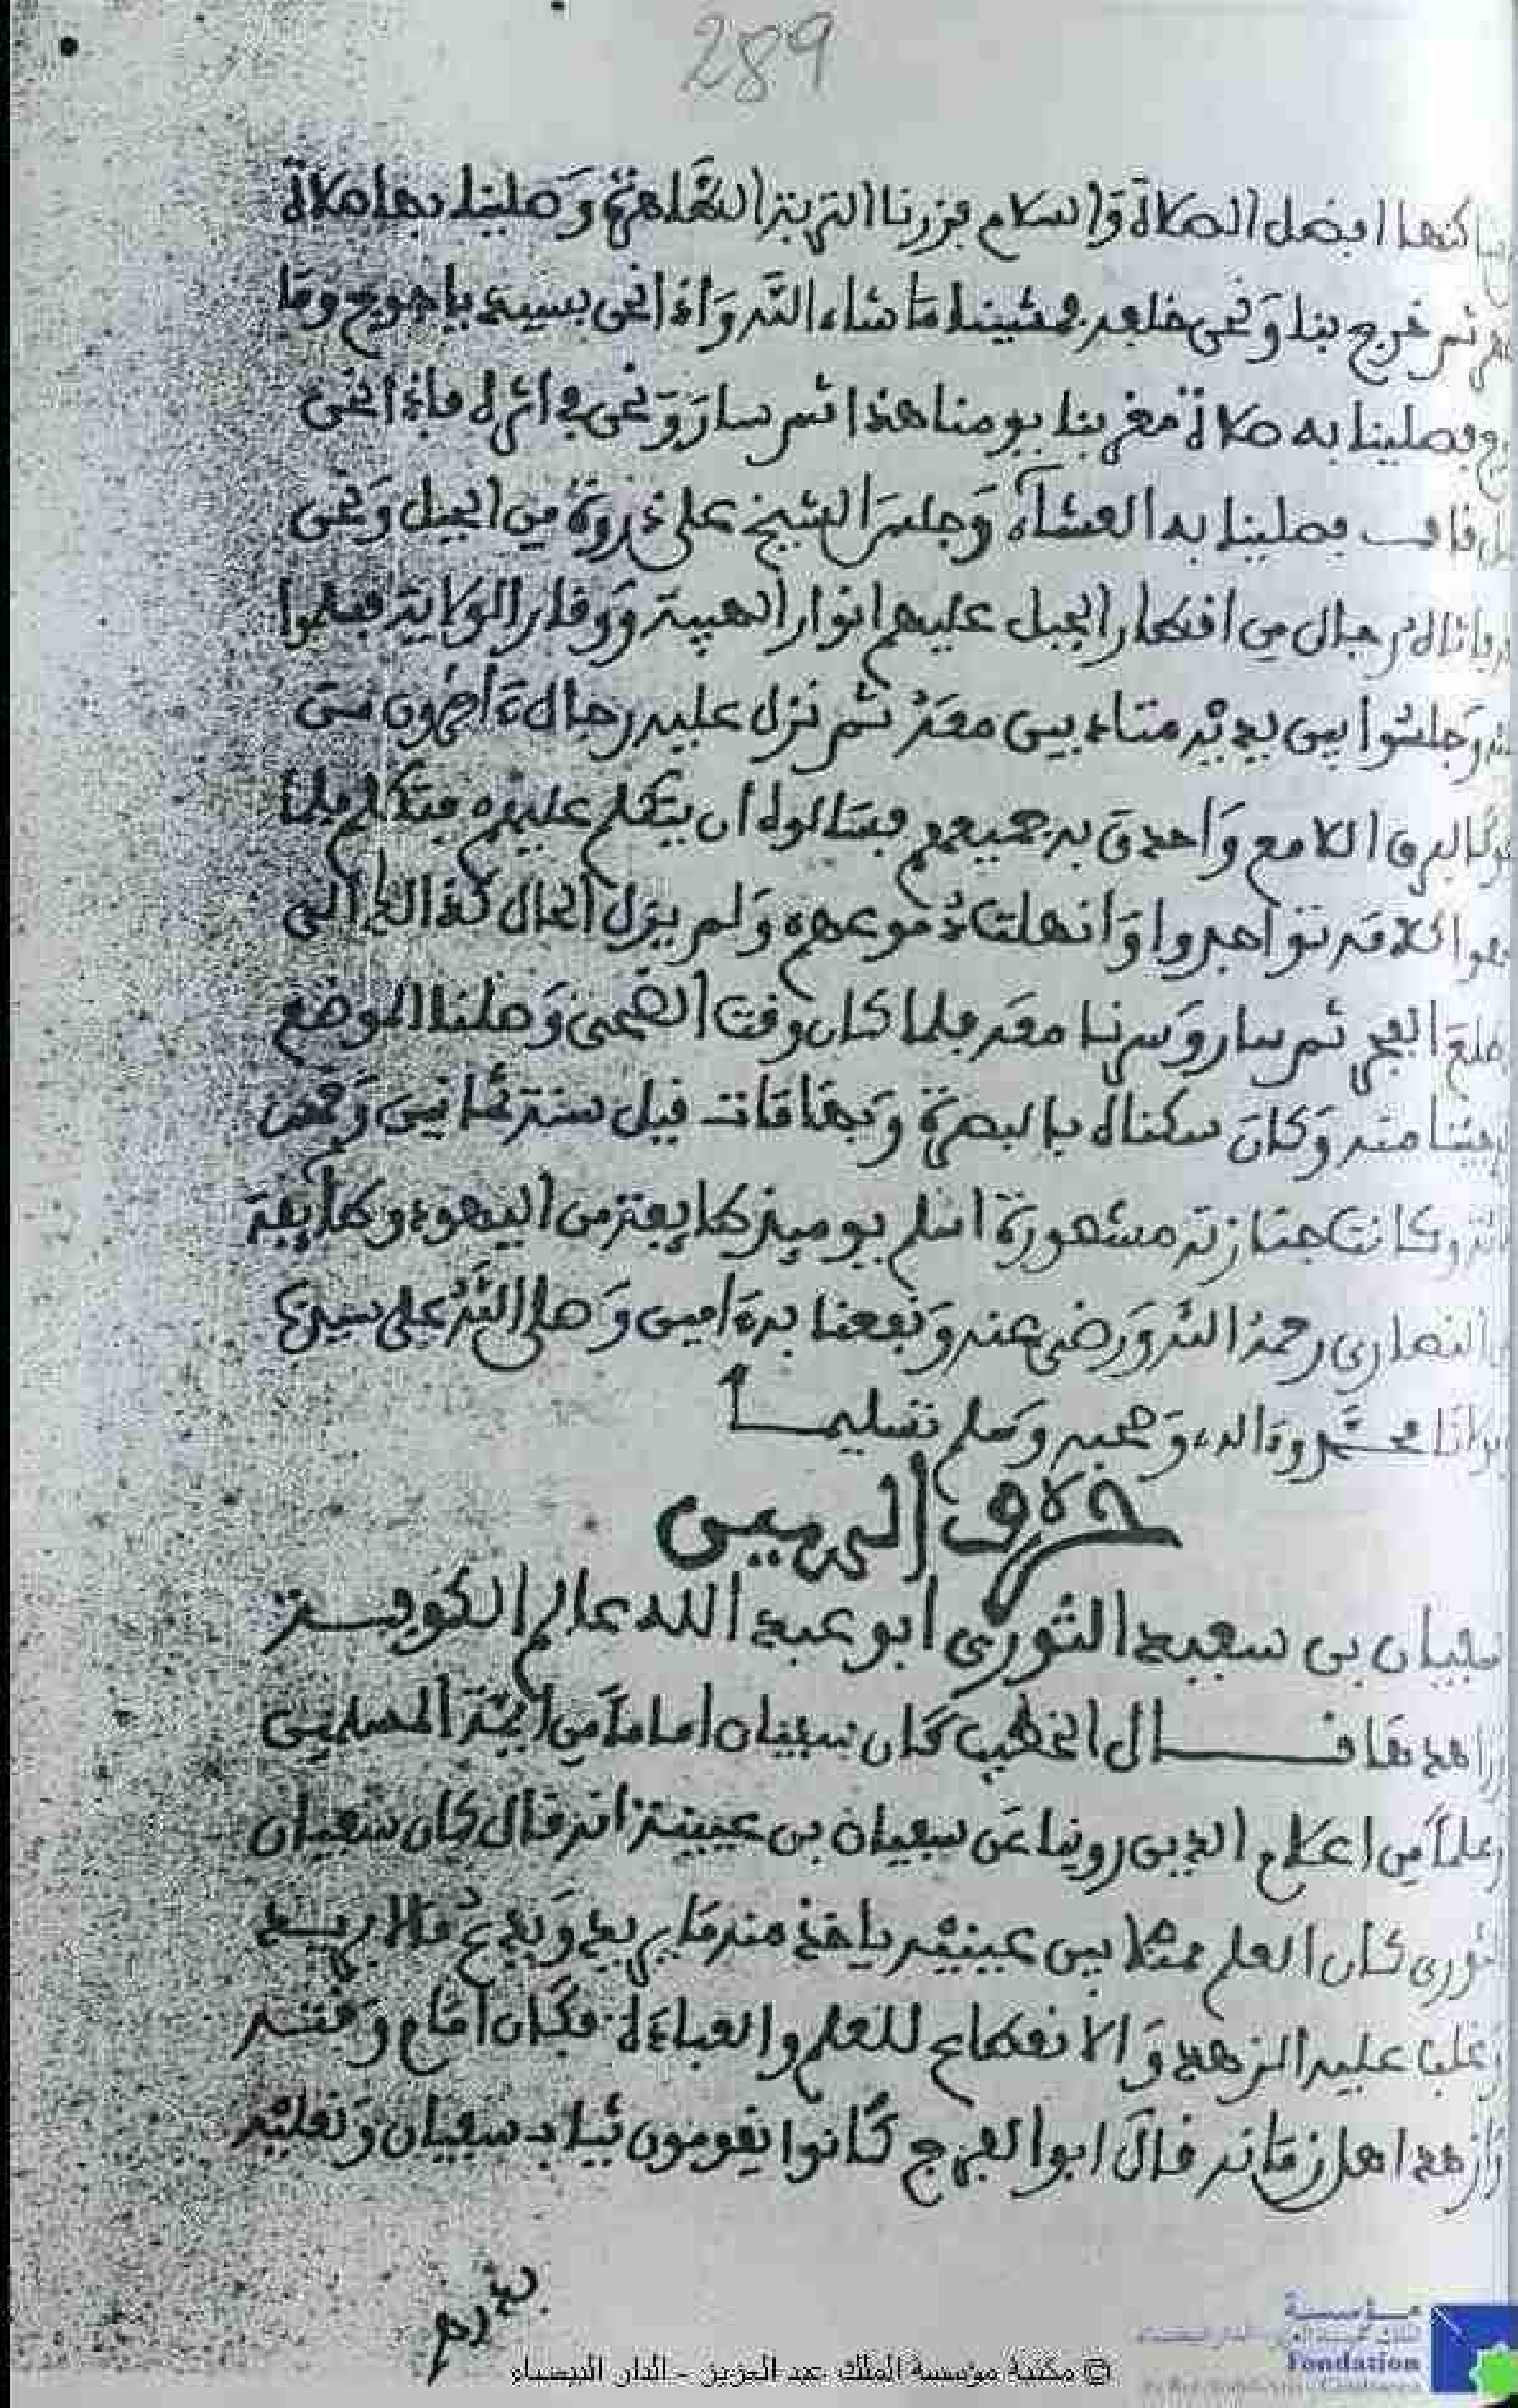 289
ساكنها افضل الصلاة والسلام فزرنا التربة الطاهرة وصلينا بها صلاة
ثم خرج بنا ونحن خلفه فمشينا ما شاء الله واذا نحن بسد ياجوج وما
فصلينا به صلاة مغربنا يومنا هذا ثم سار ونحن في اثره فاذا نحن
قاف فصلينا به العشاء وجلس الشيخ على ذروة من الجبل ونحن
رجال من اقطار الجبل عليهم انوار الهيبة ووقار الولاية فسلموا
وجلسوا بين يديه متادبين معه ثم نزل عليه رجال ءاخرون من
كالبرق اللامع واحدق به جميعهم فسالوه ان يتكلم عليهم فتكلم فلما
كلامه تواجدوا وانهلت دموعهم ولم يزل الحال كذالك الى
طلع الفجر ثم سار وسرنا معه فلما كان وقت الضحى وصلنا الموضع
جئنا منه وكان سكناه بالبصرة وبها مات قبل سنة ثمانين وخمس
وكانت جنازته مشهورة اسلم يوميذ طايفة من اليهود وطايفة
النصارى رحمه الله ورضي عنه ونفعنا به ءامين وصلى الله على سيدنا
مولانا محمد وءاله وصحبه وسلم تسليما
حرف السين
سفيان بن سعيد الثوري ابو عبد الله عالم الكوفة
زاهدها قال الخطيب كان سفيان اماما من ايمة المسلمين
وعلما من اعلام الدين روينا عن سفيان بن عيينة انه قال كان سفيان
الثوري كان العلم ممثلا بين عينيه ياخذ منه ما يريد ويدع ما لا يريد
غلب عليه الزهد والانقطاع للعلم والعبادة فكان امام وقته
وازهد اهل زمانه قال ابو الفرج كانوا يقومون ثياب سفيان ونعليه
بدرهم
© مكتبة مؤسسة الملك عبد العزيز - الدار البيضاء
مؤسسة
Fondation